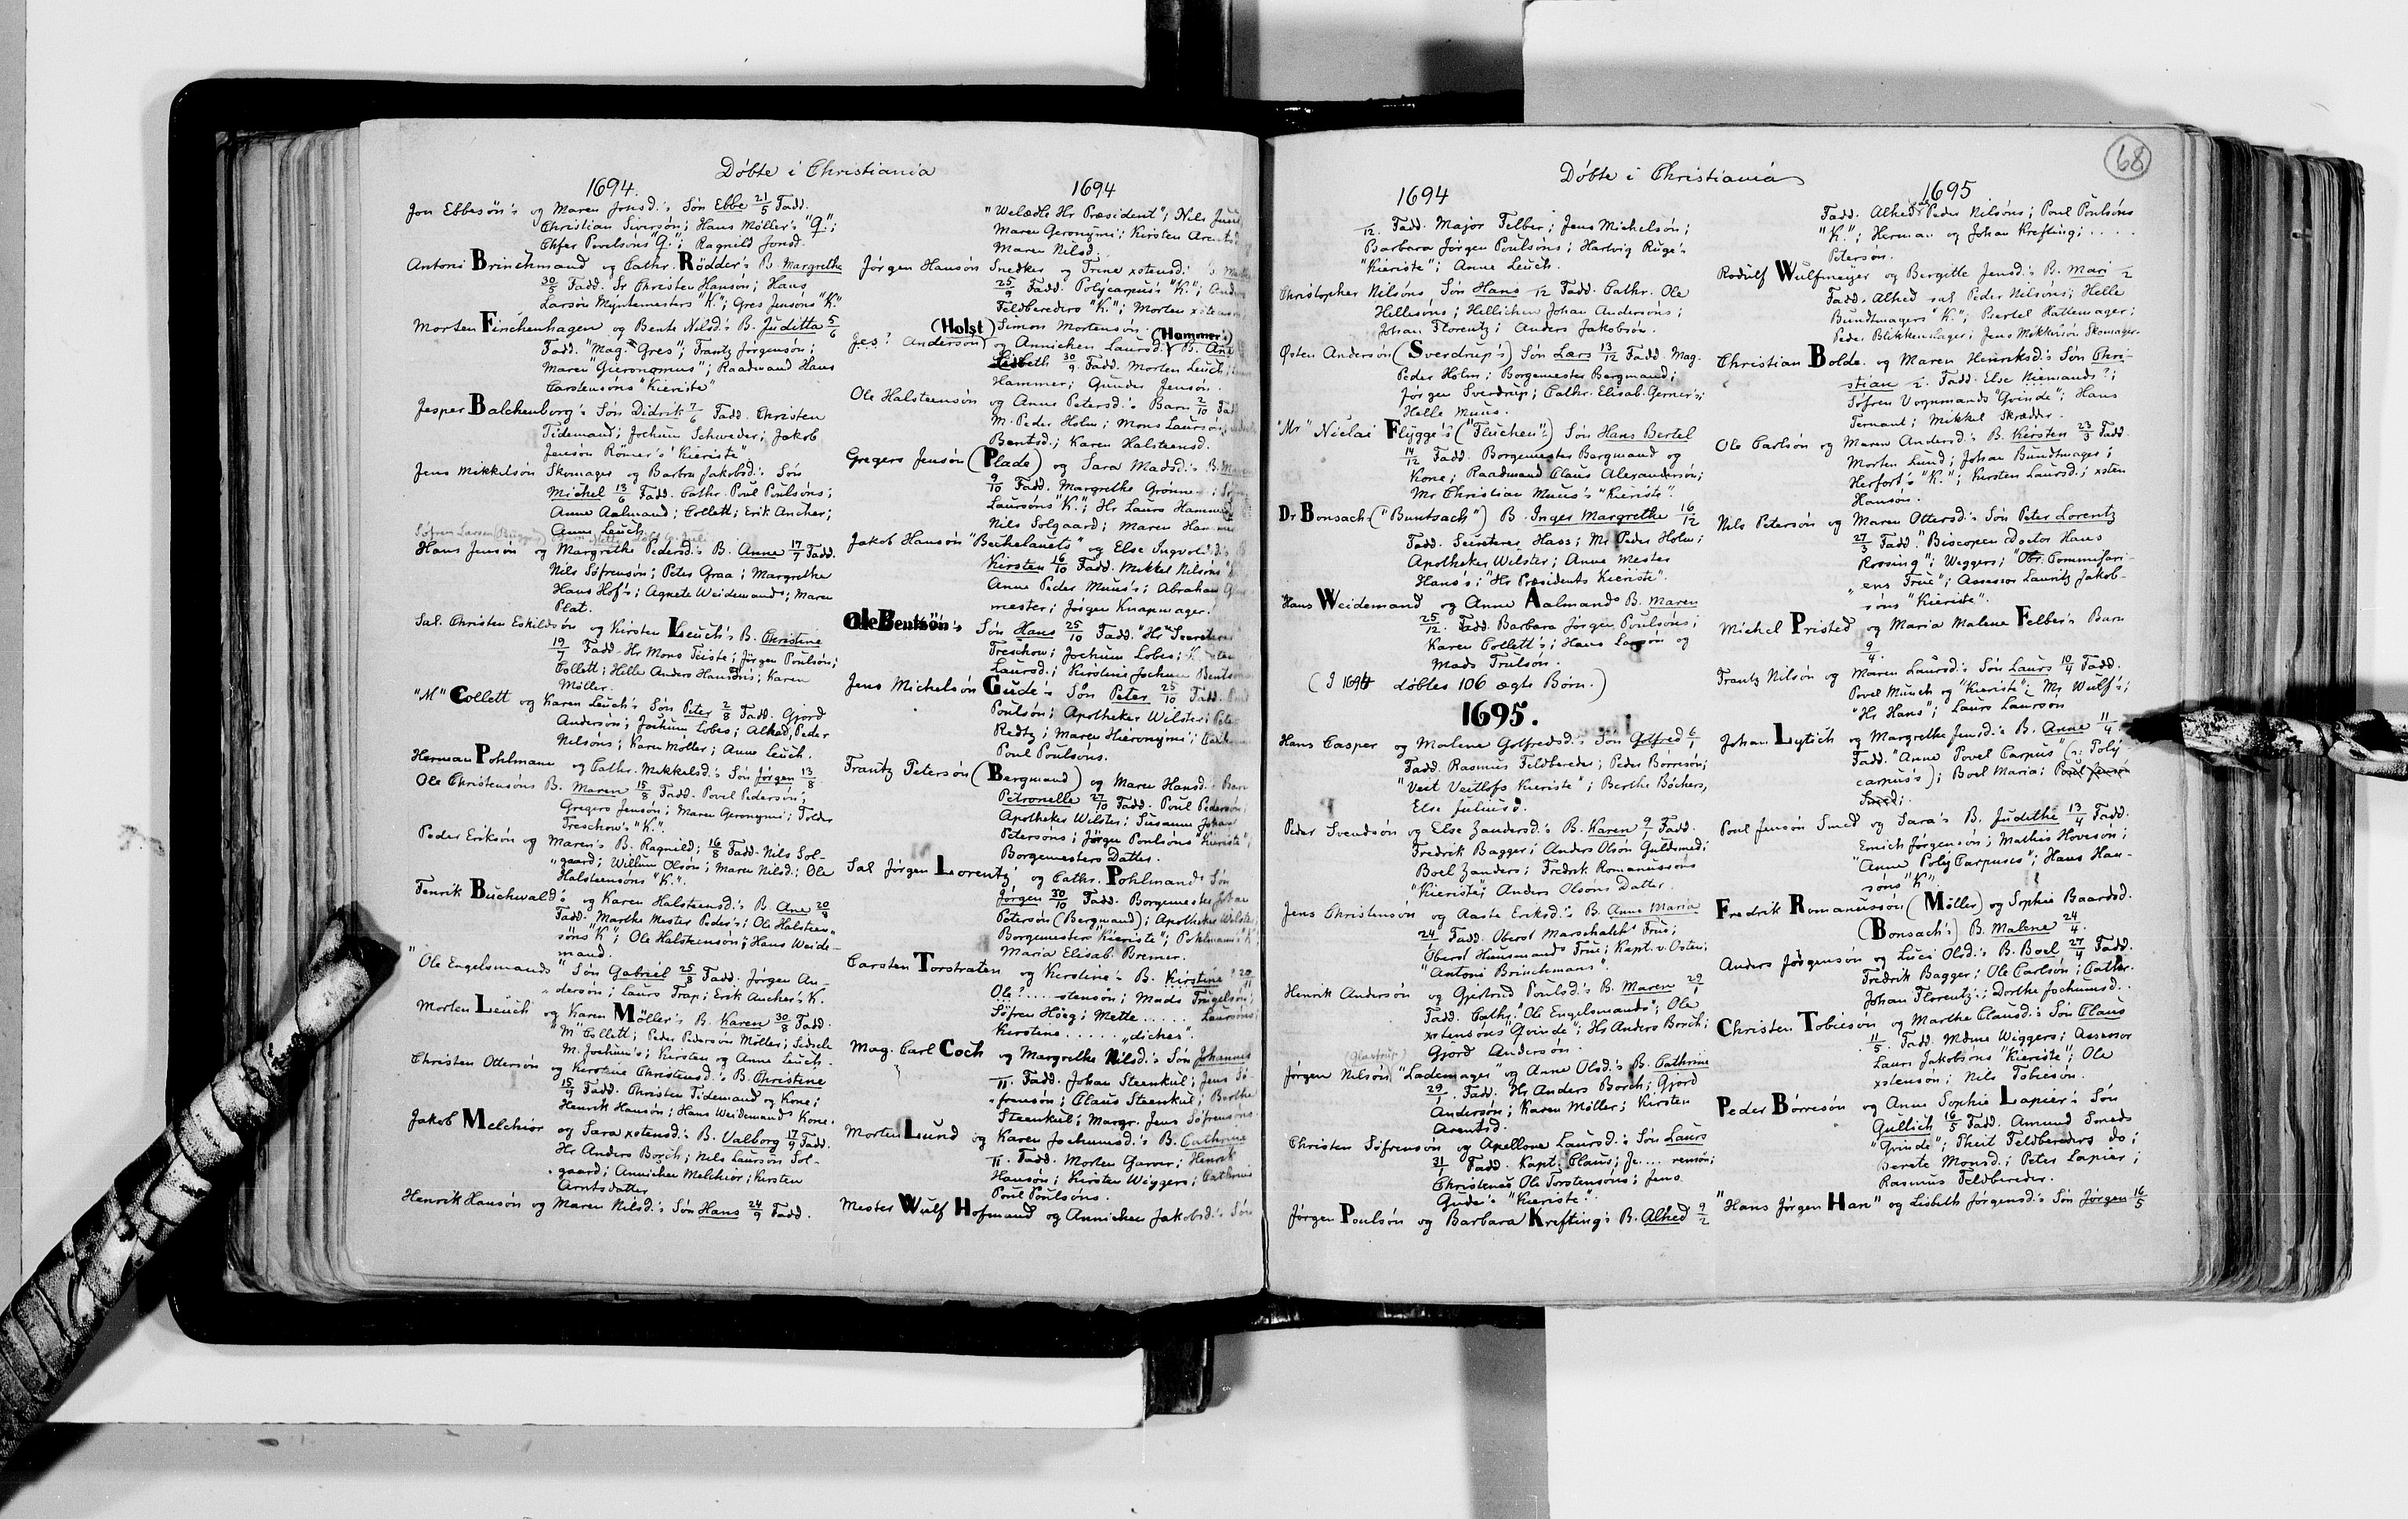 Döbte i Christiania
1694.
Jon Ebbesön's og Maren Jonsd.'s Sön Ebbe 21/5 Fadd.
Christian Siversön; Hans Möller's "Q.";
Chfer Povelsöns "Q."; Ragnild Jonsd.
Antoni Brinchmand og Cathr. Rödder's B. Margrethe
30/5 Fadd. Sr Christen Hansön; Hans
Larsön Myntemesters "K."; Gres Jensöns "K."
Morten Finchenhagen og Bente Nilsd.'s B. Juditta 5/6
Fadd. "Mag. Gres"; Frantz Jörgensön;
Maren Gieronomus"; Raadmand Hans
Carstensöns "Kieriste"
Jesper Balchenborg's Sön Didrik 7/6 Fadd. Christen
Tidemand; Jochum Schweder; Jakob
Jenson Römer's "Kieriste"
Jens Mikkelsön Skomager og Barbra Jakobsd.'s Sön
Michel 13/6 Fadd. Cathr. Poul Poulsöns;
Anne Aalmand; Collett; Erik Ancher;
Anne Leuch.
Hans Jensön og Margrethe Pedersd.'s B. Anne 17/7 Fadd.
Nils Söfrensön; Peter Graa; Margrethe
Hans Hof's; Agnete Weidemands; Maren
Plat.
Sal. Christen Eskildsön og Kirsten Leuch's B. Christine
19/7 Fadd. Hr Mons Teiste; Jörgen Poulsön;
Collett; Helle Anders Hansöns; Karen
Möller.
"M" Collett og Karen Leuch's Sön Peter 2/8 Fadd. Gjord
Andersön; Jochum Lobes; Alhed, Peder
Nilsöns; Karen Möller; Anne Leuch.
Herman Pohlmann og Cathr. Mikkelsd.'s Sön Jörgen 13/8
Ole Christensöns B. Maren 15/8 Fadd. Povel Pedersön;
Gregers Jensön; Maren Geronymi; Tolder
Treschow's "K."
Peder Eriksön og Maren's B. Ragnild; 16/8 Fadd. Nils Sol-
"gaard; Willum Olsön; Maren Nilsd.; Ole
Halsteensöns "K.".
Henrik Buchwald's og Karen Halsteensd.'s B. Ane 20/8
Fadd. Marthe Mester Peder's; Ole Halsteen"
söns "K"; Ole Halsteensön; Hans Weide-
mand.
"Ole Engelsmands" Sön Gabriel 25/8 Fadd. Jörgen An-
dersön; Laurs Trap; Erik Ancher's K.
Morten Leuch og Karen Möller's B. Karen 30/8 Fadd.
"M" Collett; Peder Pedersön Möller; Sidsele
M. Jochum's; Kirsten og Anne Leuch.
Christen Ottersön og Kirstine Christensd.'s B. Christine
15/9 Fadd. Christen Tidemand og Kone;
Henrik Hansön; Hans Weidemands Kone.
Jakob Melchior og Sara xstensd.'s B. Valborg 17/9 Fadd.
Hr Anders Borch; Nils Laursön Sol-
gaard; Annichen Melchior; Kirsten
Arntsdatter
Henrik Hansön og Maren Nilsd.'s Sön Hans 24/9 Fadd.
1694
"Welædle Hr Præsident"; Nils
Maren Geronymi; Kirsten
Maren Nilsd.
Jörgen Hansön Snedker og Trine xstensd.'s
25/9 Fadd. Polycarpus's "K.";
Feldbereders "K."; Morten
Simon Mortensön.
Jes? Andersön (Holst) og Annichen Laursd.'s (Hammer's) B. Ane
Lisbeth 30/9 Fadd. Morten Leuch;
Hammer; Gunder Jensön.
Ole Halsteensön og Anne Petersd.'s Barn 2/10
M. Peder Holm; Mons Laursön;
Bentsd.; Karen Halsteensd.
Gregers Jensön (Plade) og Sara Madsd.'s B.
9/10 Fadd. Margrethe Grönne
Laursöns "K."; Hr Laurs
Nils Solgaard; Maren
Jakob Hansön "Beckelauets" og Else
Kirsten 16/10 Fadd. Mikkel Nilsöns
Anne Peder Muus's; Abraham
mester; Jörgen Knapmager.
Ole Bentsön's Sön Hans 25/10 Fadd. "Hr Secreterer
Treschow; Jochum Lobes;
Laursd.; Kirstine Jochum
Jens Michelsön Gude's Sön Peter 25/10 Fadd.
Poulsön; Apotheker Wilster;
Redtz; Maren Hieronymi;
Poul Poulsöns.
Frantz Petersön (Bergmand) og Maren Hansd.'s Barn
Petronelle 27/10 Fadd. Poul Pedersön;
Apotheker Wilster; Susanne Johan
Petersöns; Jörgen Poulsöns "Kieriste";
Borgemesters Datter.
Sal Jörgen Lorentz' og Cathr. Pohlmand's Sön
Jörgen 30/10 Fadd. Borgemester Johan
Petersön (Bergmand); Apotheker Wilster;
Borgemesters "Kieriste"; Pohlmann's "K"
Maria Elisab. Bremer.
Carsten Torstraten og Kirstine's B. Kirstine 20/11
Ole? ..... stensön; Mads Trugelsön;
Söfren Höeg; Mette ..... Laursöns;
Kirstine ..... "diches".
Mag. Carl Coch og Margrethe Nilsd.'s Sön Johannes
/11. Fadd. Johan Steenkul; Jens Sö-
frensön; Claus Steenkul; Berthe
Steenkul; Margr. Jens Söfrensöns
Morten Lund og Karen Jochumsd.'s B. Cathrine
/11. Fadd. Morten Garver; Henrik
Hansön; Kirsten Wiggers; Cathrine
Poul Poulsöns.
Mester Wulf Hofmand og Annichen Jakobsd.'s Sön
68
Döbte i Christiania
1694
/12. Fadd. Major Felber; Jens Michelsön;
Barbara Jörgen Poulsöns; Hartvig Ruge's
"Kieriste"; Anne Leuch.
Christopher Nilsöns Sön Hans /12 Fadd. Cathr. Ole
Hellesöns; Hellichen Johan Andersöns;
Johan Florentz; Anders Jakobsön.
Østen Andersön (Sverdrup's) Sön Lars 13/12 Fadd. Mag.
Peder Holm; Borgemester Bergmand;
Jörgen Sverdrup; Cathr. Elisab. Gerner's;
Helle Muus.
"Mr" Niclai Flygge's ("Fluchen"?) Sön Hans Bertel
14/12 Fadd. Borgemester Bergmand og
Kone; Raadmand Claus Alexandersön;
Mr Christian Muus's "Kieriste".
Dr Bonsach ("Buntsach") B. Inger Margrethe 16/12
Fadd. Secreterer Hass; Mr Peder Holm;
Apotheker Wilster; Anne Mester
Hans's; "Hr Præsidents Kieriste".
Hans Weidemand og Anne Aalmands B. Maren
25/12. Fadd. Barbara Jörgen Poulsöns;
Karen Collett's; Hans Larsön og
Mads Trulsön.
(I 1694 döbtes 106 ægte Börn.)
1695.
Hans Casper og Malene Golfredsd.'s Sön Golfred 6/1
Fadd. Rasmus Feldbereder; Peder Börresön;
"Veit Veitlofs Kieriste"; Berthe Böchers,
Else Juliusd.
Peder Svendsön og Else Zandersd.'s B. Karen 9/1 Fadd.
Fredrik Bagger; Anders Olsön Guldsmed;
Boel Zanders; Fredrik Romanussöns
"Kieriste"; Anders Olsöns Datter.
Jens Christensön og Aaste Eriksd.'s B. Anne Maria
24/1 Fadd. Oberst Marschalchs Frue;
Oberst Huusmands Frue; Kapt. v. Osten;
"Antoni Brinckmans".
Henrik Andersön og Gjertrud Poulsd.'s B. Maren 29/1
Fadd. Cathr. "Ole Engelsmands"; Ole
xstensöns "Qvinde"; Hr Anders Borch;
Gjord Andersön.
Jörgen Nilsön "Lademager" og Anne Olsd.'s B. Cathrine
29/1. Fadd. Hr Anders Borch; Gjord
Andersön; Karen Möller; Kirsten
Arentsd.
Christen Söfrensön og Apellone Laursd.'s Sön Laurs
31/1 Fadd. Kapt. Claus; Je.... rensön;
Christence Ole Torstensöns; Jens
Gude's "Kieriste".
Jörgen Poulsön og Barbara Krefting's B. Alhed 9/2
1695
Fadd. Alhed sal Peder Nilsöns; Poul Poulsöns
"K."; Herman og Johan Krefting; .....
Peterson.
Rodulf Wulfmeyer og Bergitte Jensd.'s B. Mari /2
Fadd. Alhed sal Peder Nilsöns; Helle
Bundtmagers "K."; Biertel Hattemager;
Peder Blikkenslager; Jens Mikkelsön Skomager.
Christian Bolde og Maren Henriksd.'s Sön Chri-
stian /2. Fadd. Else Niemands?;
Söfren Vognmands "Qvinde"; Hans
Fernant; Mikkel Skræder.
Ole Carlsön og Maren Andersd.'s B. Kirsten 23/3 Fadd
Morten Lund; Johan Bundtmager;
Herfort's "K."; Kirsten Laursd.; xsten
Hansön.
Nils Petersön og Maren Ottersd.'s Sön Peter Lorentz
27/3 Fadd. "Biscopen Doctor Hans
Rosing"; Wiggers; "Obr. Commisari-
"ens Frue"; Assessor Lauritz Jakob-
söns "Kieriste".
Michel Pristed og Maria Malene Felber's Barn
9/4.
Frantz Nilsön og Maren Laursd.'s Sön Laurs 10/4 Fadd.
Povel Munch og "Kieriste"; Mr Wulf's;
"Hr Hans"; Laurs Laursön
Johan Lytich og Margrethe Jensd.'s B. Anne 11/4
Fadd. "Anne Povel Carpus" (ɔ: Poly-
carpus's); Boel Maria; Poul Jensön
Smed;
Poul Jensön Smed og Sara's B. Judithe 13/4 Fadd.
Emich Jörgensön; Mathis Hovesön;
"Anne Poly Carpuses"; Hans Han-
söns "K".
Fredrik Romanussön (Möller) og Sophie Baardsd.
(Bonsach's) B. Malene 24/4.
Anders Jörgensön og Luci Olsd.'s B. Boel 27/4 Fadd.
Fredrik Bagger; Ole Carlsön; Cathr.
Johan Florentz.; Dorthe Jochumsd..
Christen Tobiesön og Marthe Clausd.'s Sön Claus
11/5. Fadd. Mdme Wiggers; Assessor
Laurs Jakobsöns "Kieriste"; Ole
xstensön; Nils Tobiesön.
Peder Börresön og Anne Sophie Lapier's Sön
Gullich 16/5 Fadd. Amund Smeds
"Qvinde"; Theit Feldbereders do;
Berete Monsd.; Peter Lapier;
Rasmus Feldbereder.
"Hans Jörgen Han" og Lisbeth Jörgensd.'s Sön Jörgen 16/5